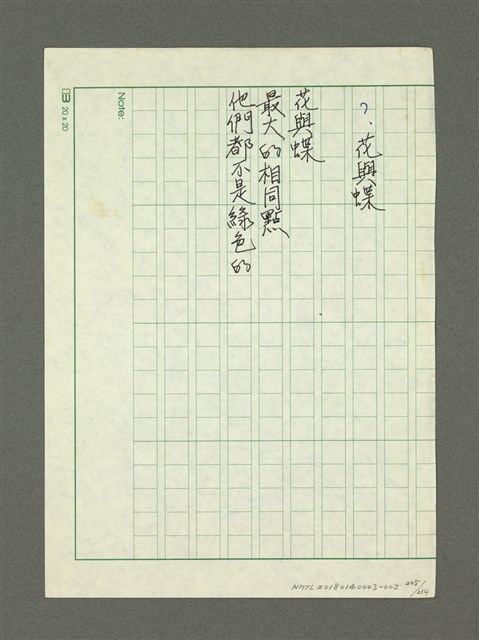 ?、花與蝶
花與蝶
最大的相同點
他們都不是綠色的
Note:
20 x 20
NMTL20180140003-002
205/254